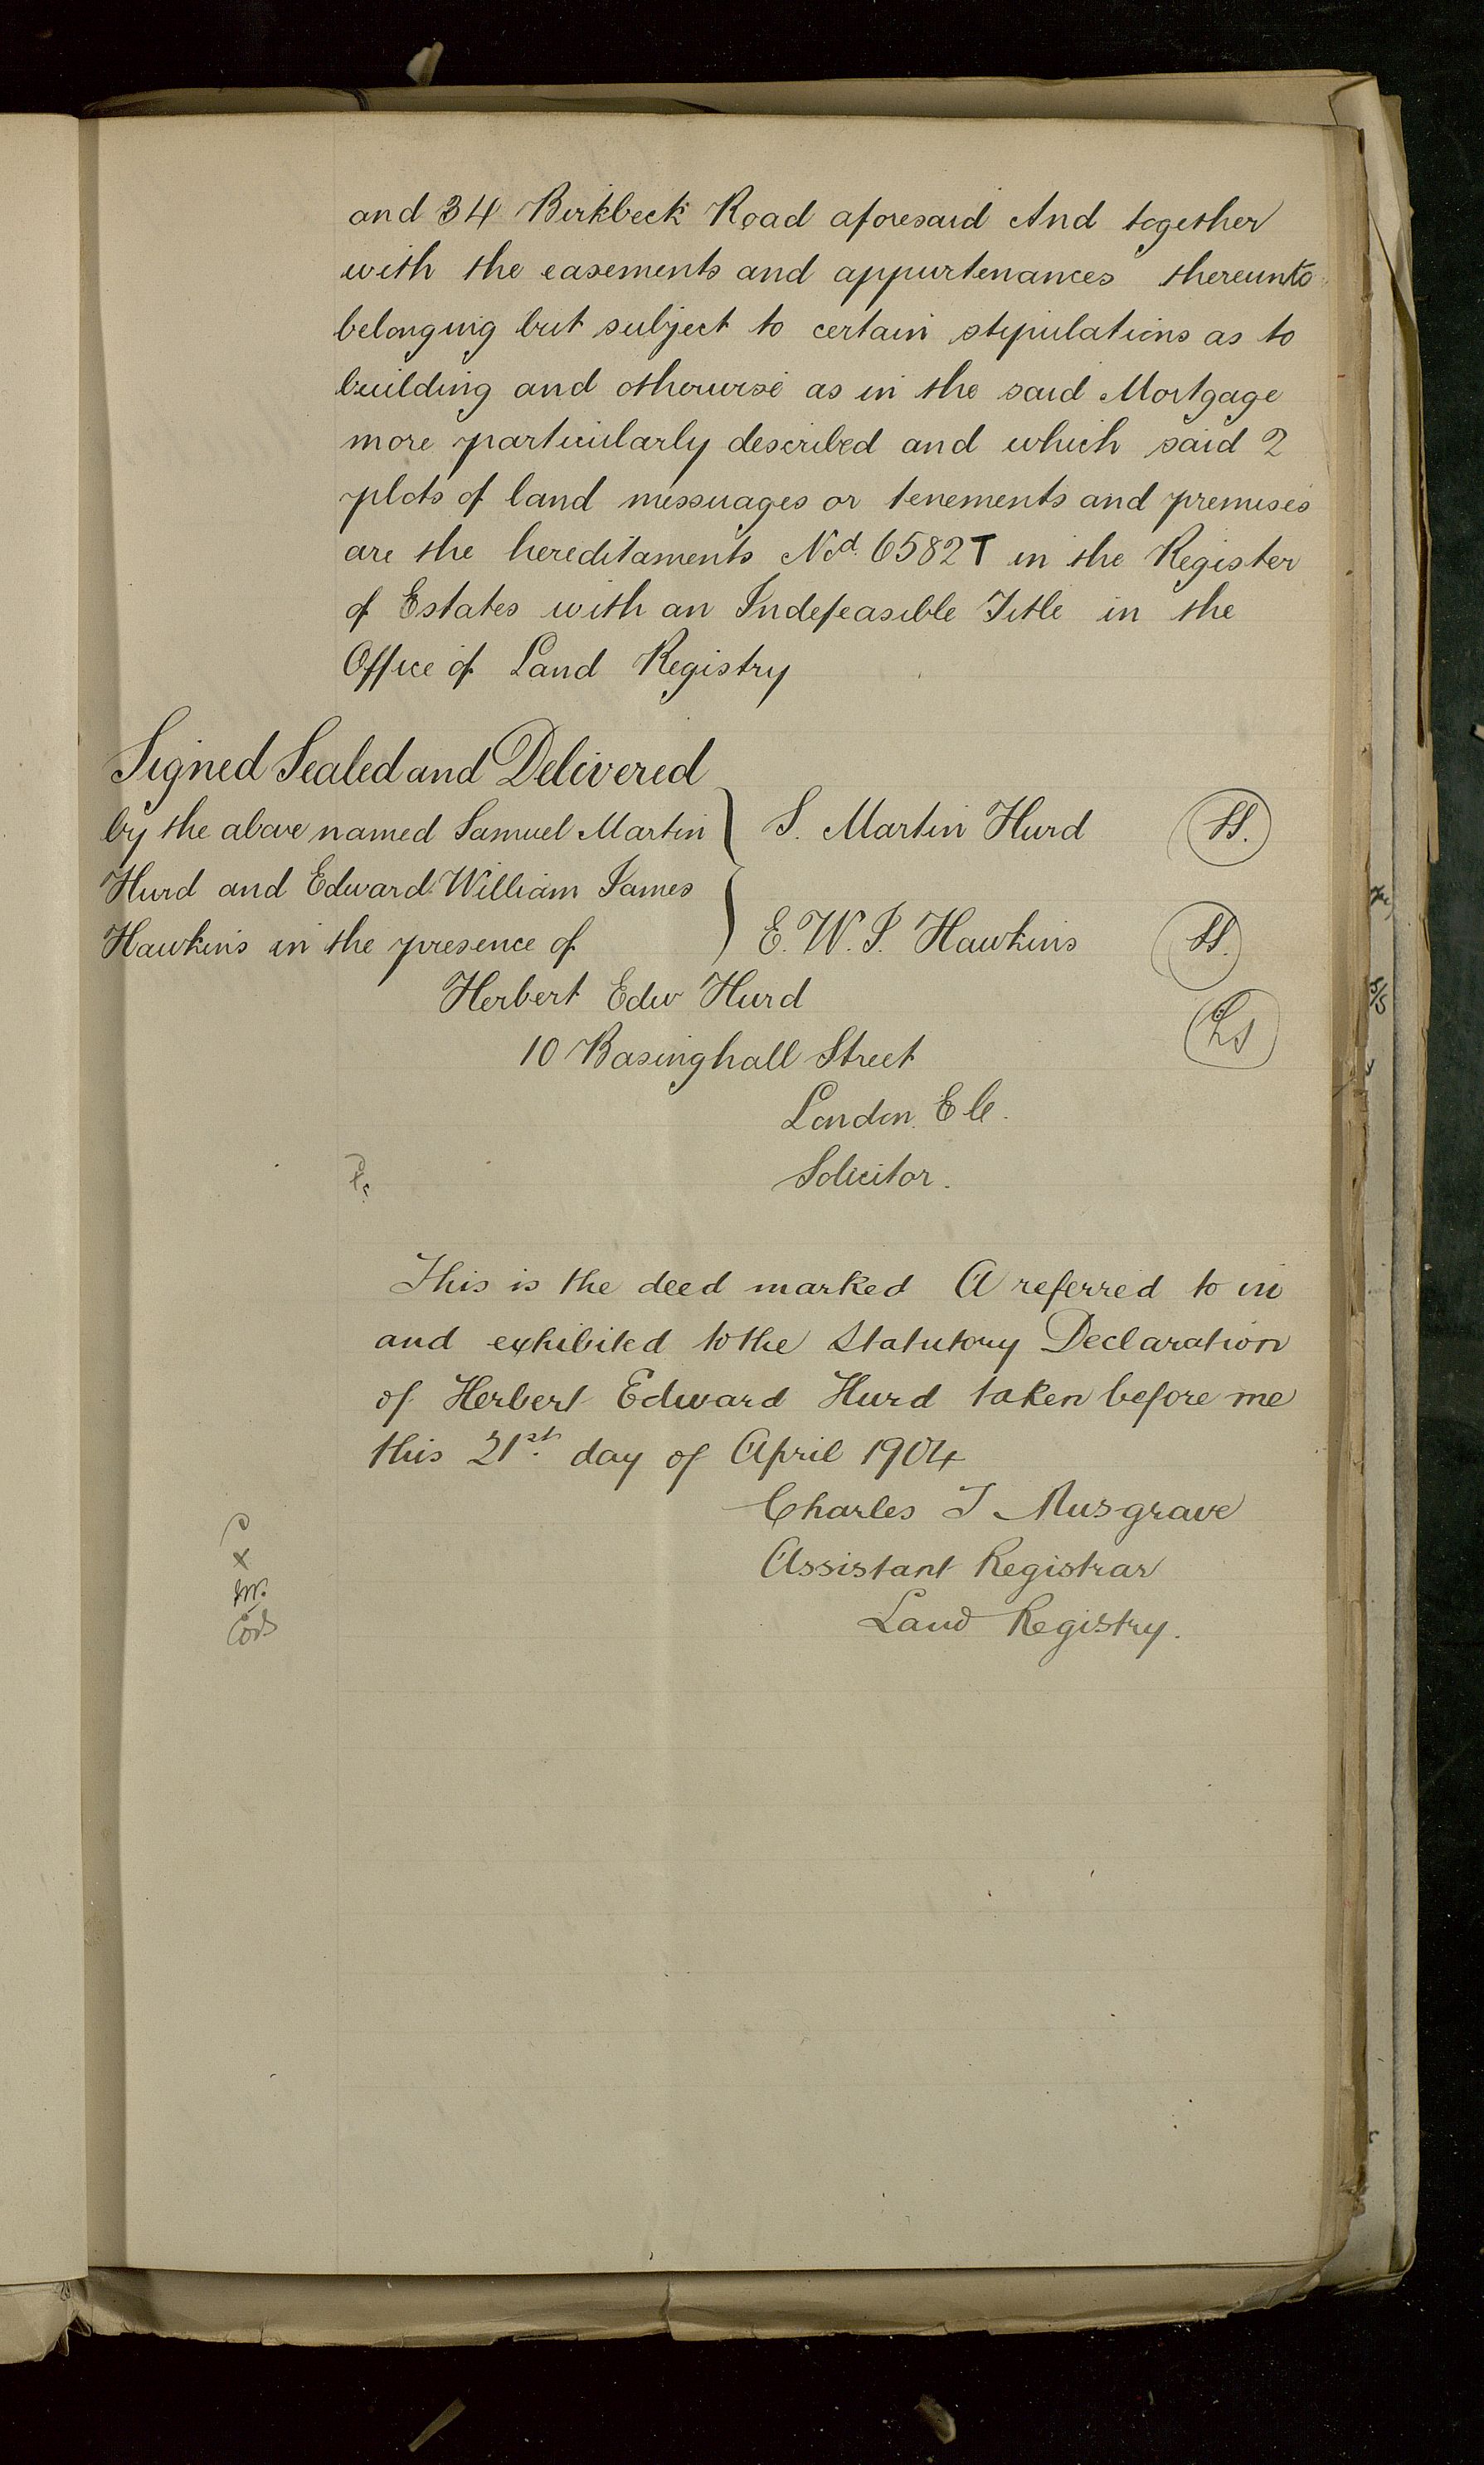 and 34 Birkbeck Road aforesaid And together
with the easements and appurtenances thereunto
belonging but subject to certain stipulations as to
building and otherwise as in the said Mortgage
more particularly described and which said 2
plots of land messuages or tenements and premises
are the hereditaments Nod. 6582T in the Register
of Estates with an Indefeasible Title in the
Office of Land Registry
Signed Sealed and Delivered
by the above named Samuel Martin } S. Martin Hurd LS.
Hurd and Edward William James
Hawkins in the presence of } E. W. J. Hawkins LS.
Herbert Edw Hurd LS
10 Basinghall Street
London. E C.
Solicitor.
This is the deed marked A referred to in
and exhibited to the Statutory Declaration
of Herbert Edward Hurd taken before me
this 21st. day of April 1904
Charles J Musgrave
Assistant Registrar
Land Registry.